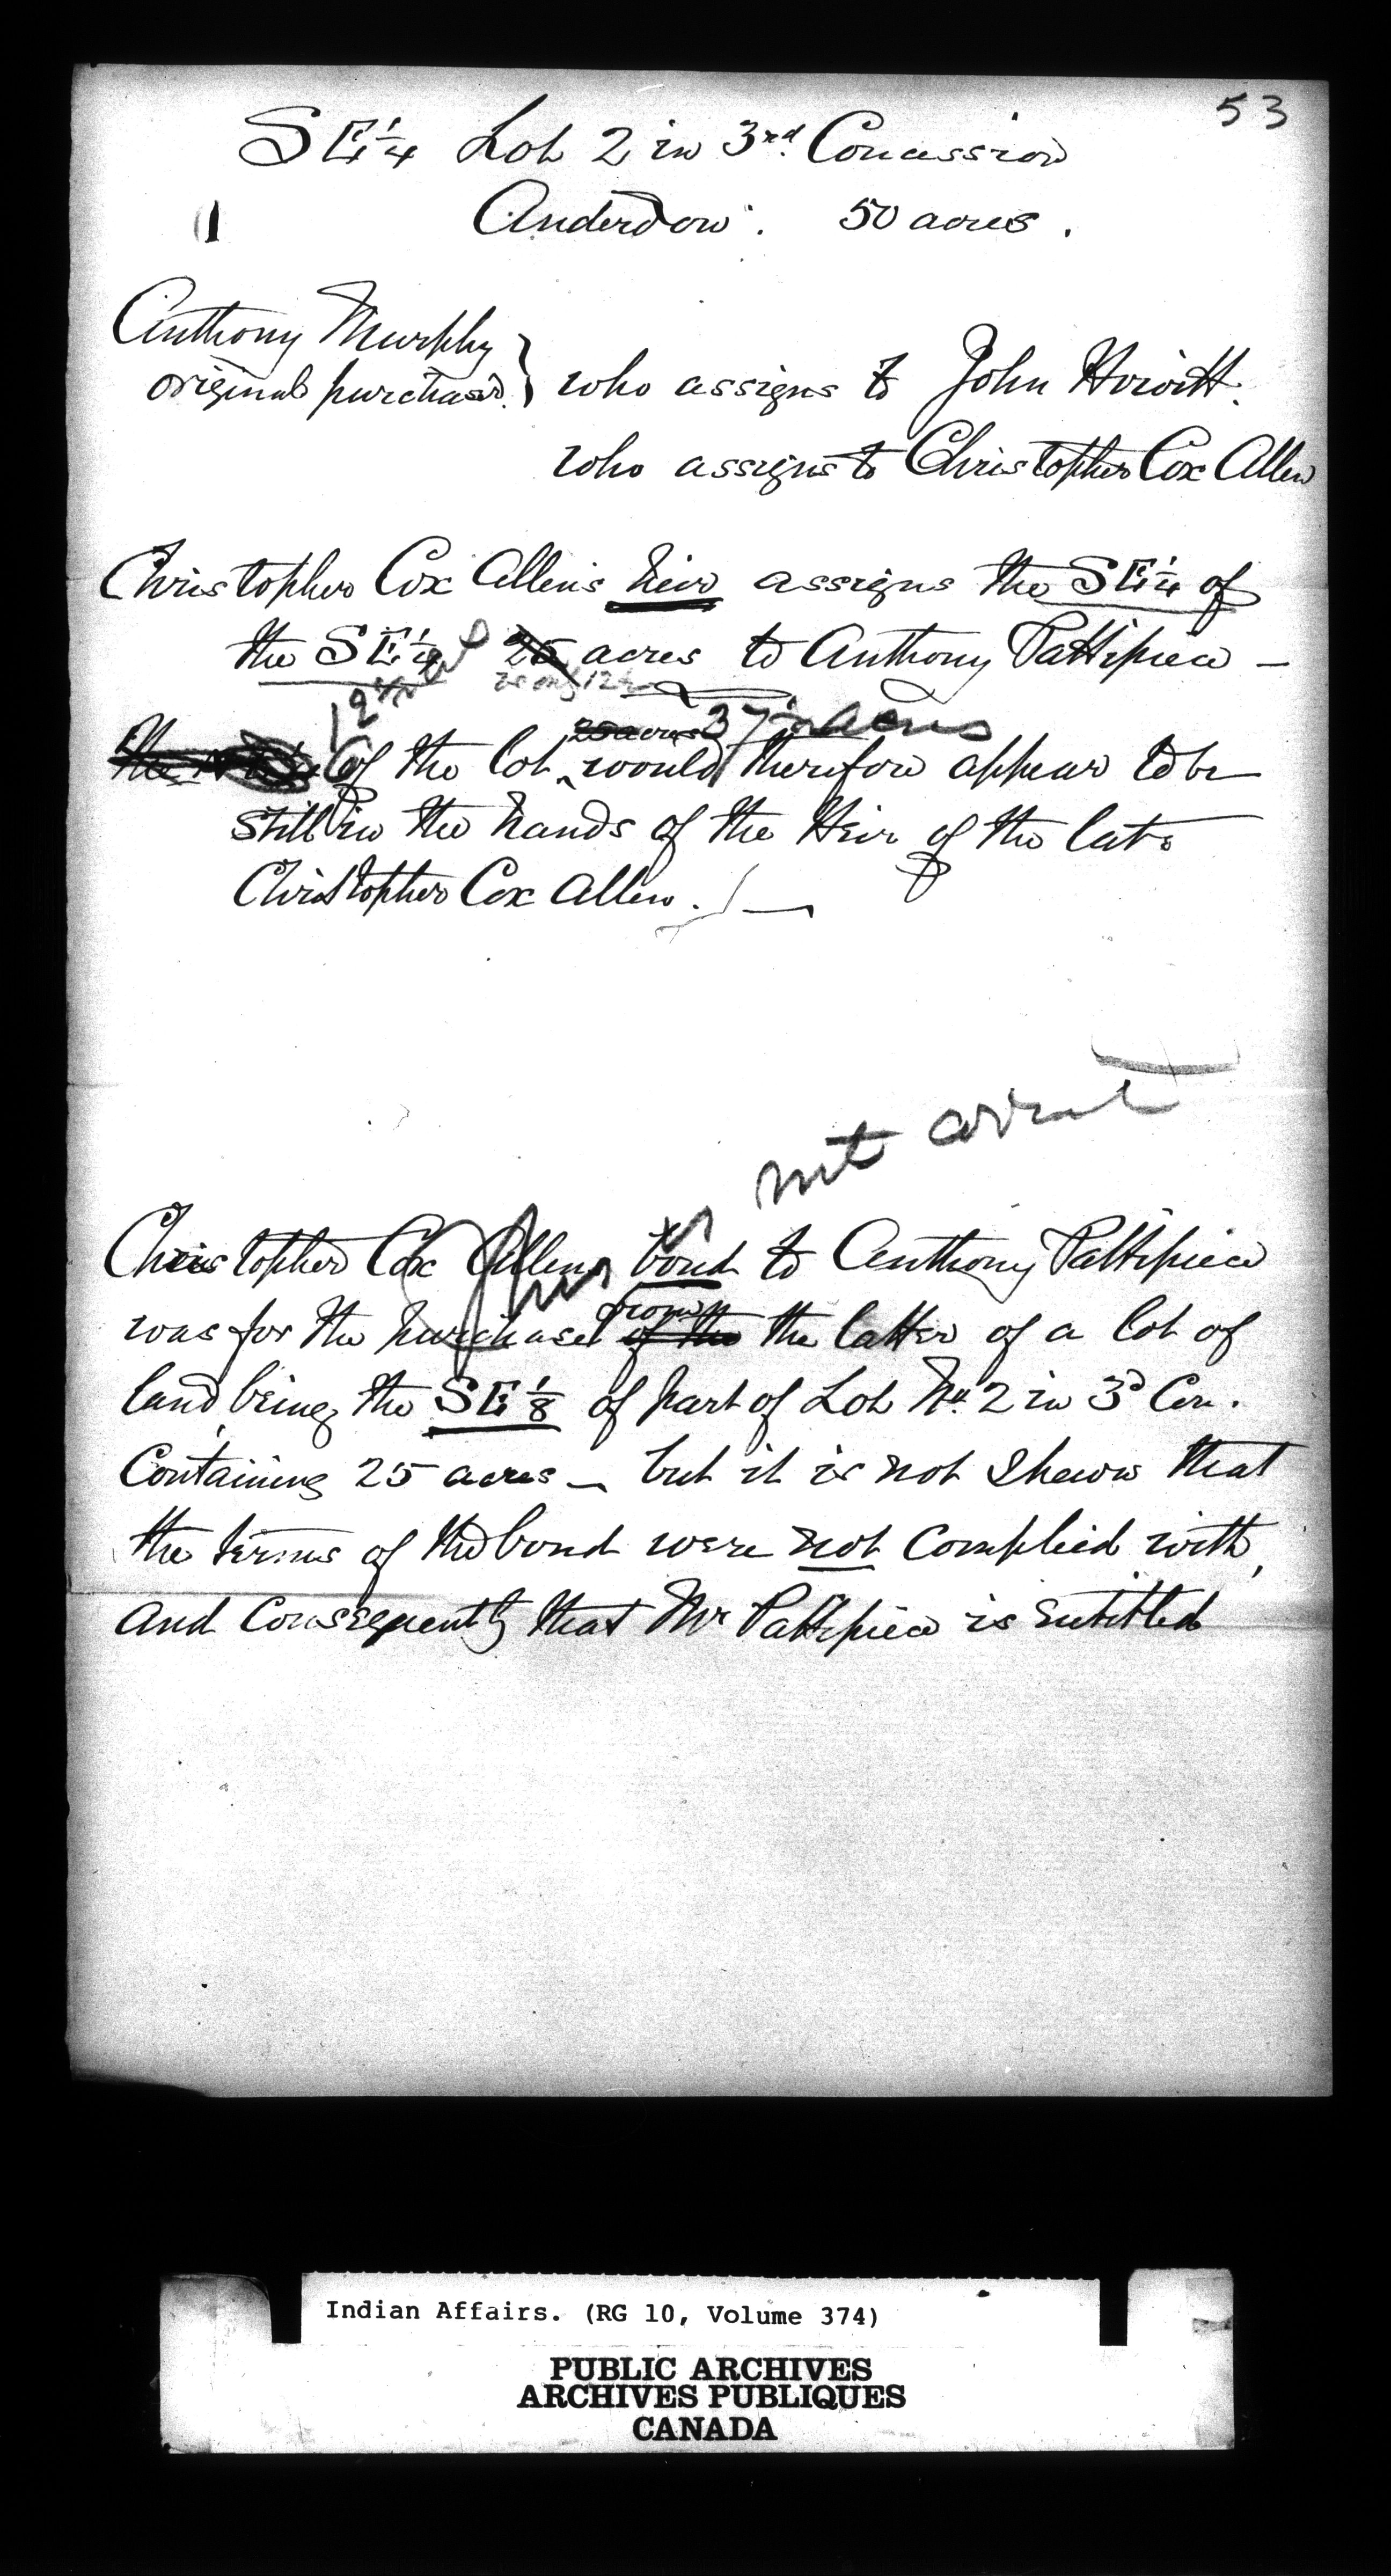 53
SE 1/4 Lot 2 in 3rd. Concession
Anderdon. 50 acres.
Anthony Murphy
original purchaser } who assigns to John Hewitt.
who assigns to Christopher Cox Allen
Christopher Cox Allens heir assigns the SE 1/4 of
the SE 1/4 25 acres to Anthony Pattipiece —
is only 12 1/2
25 acres 37 1/2 acres
of the lot would therefore appear to be
still in the hands of the Heir of the late
Christopher Cox Allen. —
not correct
Christopher Cox Allens bond to Anthony Pattipiece
from
was for the purchase of the the latter of a lot of
land being the SE 1/8 of part of Lot No. 2 in 3d Con.
Containing 25 acres — but it is not Shewn that
the terms of the bond were not Complied with,
and Consequently that Mr Pattipiece is entitled
Indian Affairs. (RG 10, Volume 374)
PUBLIC ARCHIVES
ARCHIVES PUBLIQUES
CANADA